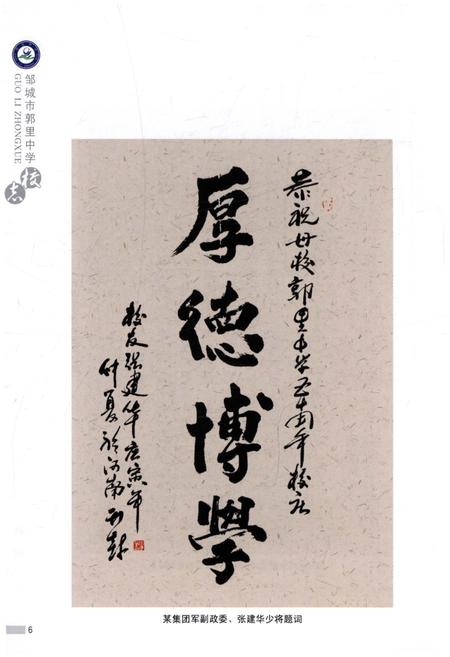 邹城市郭里中学
GUO LI ZHONGXUE
校志
恭祝母校郭里中学五十周年校庆
厚德博學
校友张建华庚寅年
仲夏於河南开封
某集团军副政委、张建华少将题词
6